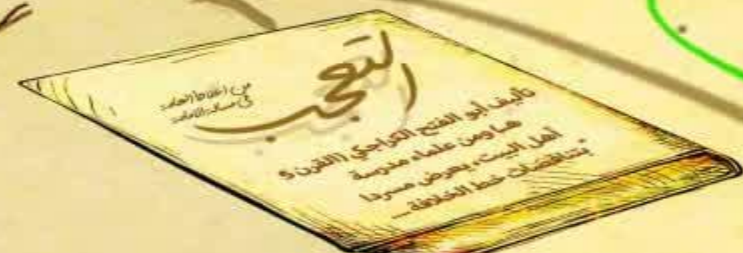 التعجب
من أغلاط العامة
في مسألة الإمامة
تأليف أبو الفتح الكراجكي (القرن 5
هـ) ومن علماء مدرسة
أهل البيت، يعرض مسردا
"بتناقضات خط الخلافة ...